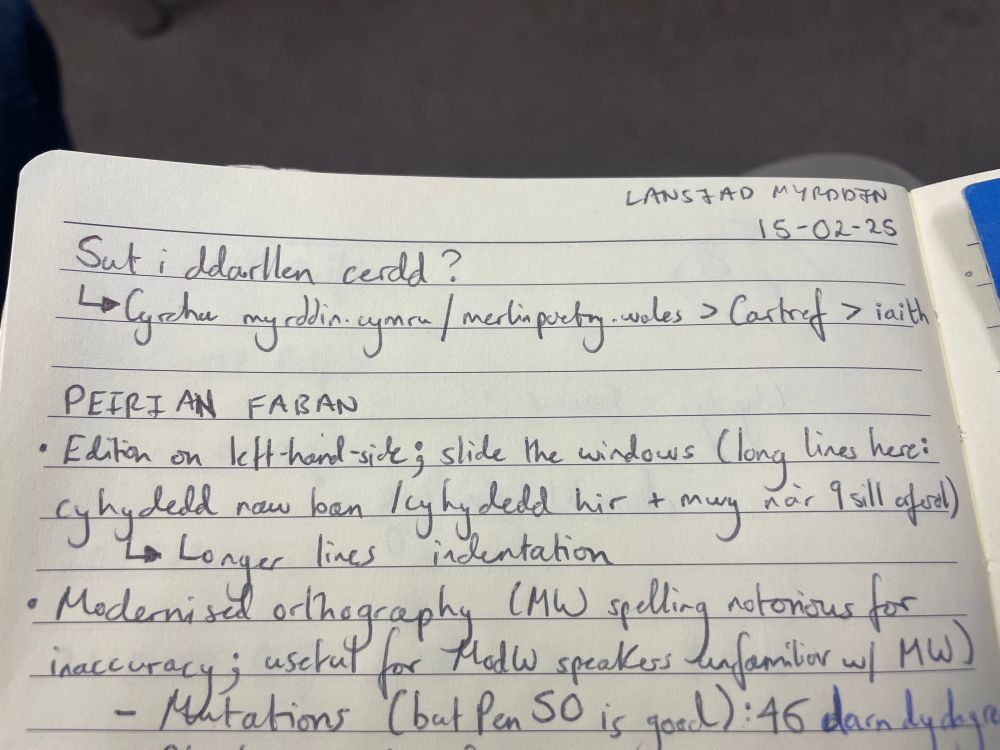 LANSIAD MYRDDIN
15-02-25
Sut i ddarllen cerdd?
↳ Cyrchu myrddin.cymru / merlinpoetry.wales > Cartref > iaith
PEIRIAN FABAN
• Edition on left-hand-side; slide the windows (long lines here:
cyhydedd naw ban / cyhydedd hir + mwy na'r 9 sill arferol)
↳ Longer lines indentation
• Modernised orthography (MW spelling notorious for
inaccuracy; useful for ModW speakers unfamiliar w/ MW)
- Mutations (but Pen 50 is good): 46